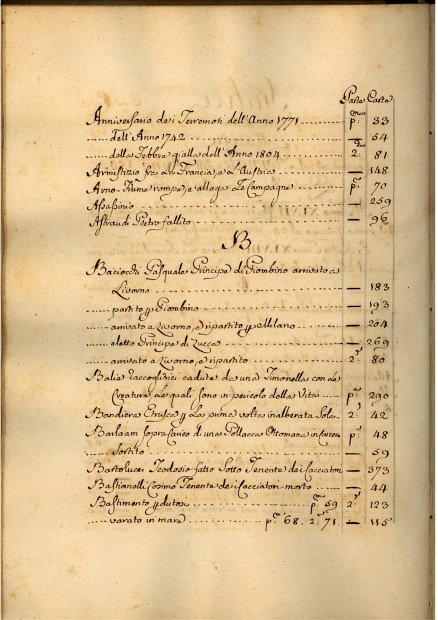 Parte Carte
Anniversario dei Terremoti dell'Anno 1771 ............ p.ma 33
...... dell'Anno 1742 ............ — 54
...... della Febbre gialla dell'Anno 1804 ............ 2.da 81
Armistizio fra La Francia, e L'Austria ............ — 148
Arno-Fiume rompe, e allaga Le Campagne ............ p.a 70
Assassinio ............ — 259
Astraudi Pietro fallito ............ — 96
B
Baciocchi Pasquale Principe di Piombino arrivato a
Livorno ............ — 183
...... partito p Piombino ............ — 193
...... arrivato a Livorno, e ripartito p Milano ............ — 204
...... eletto Principe di Lucca ............ — 269
...... arrivato a Livorno, e ripartito ............ 2.a 80
Balie raccoglitrici cadute da una Timonella con Le
Creature, Le quali sono in pericolo della Vita ...... p.a 290
Bandiera Etrusca p La prima volta inalberata 2.a 42
Barlaam sopra Carico d'una Pollacca Ottomana in p.a 48
Sortito ............ — 59
Bartolucci Teodosio fatto Sotto Tenente de' Cacciatori — 373
Bastianelli Cosimo Tenente de' Cacciatori morto ...... — 44
Bastimento p.duto ............ p.a 59 2.a 123
...... varato in mare ............ p.a 68. 2.a 71 ...... — 115